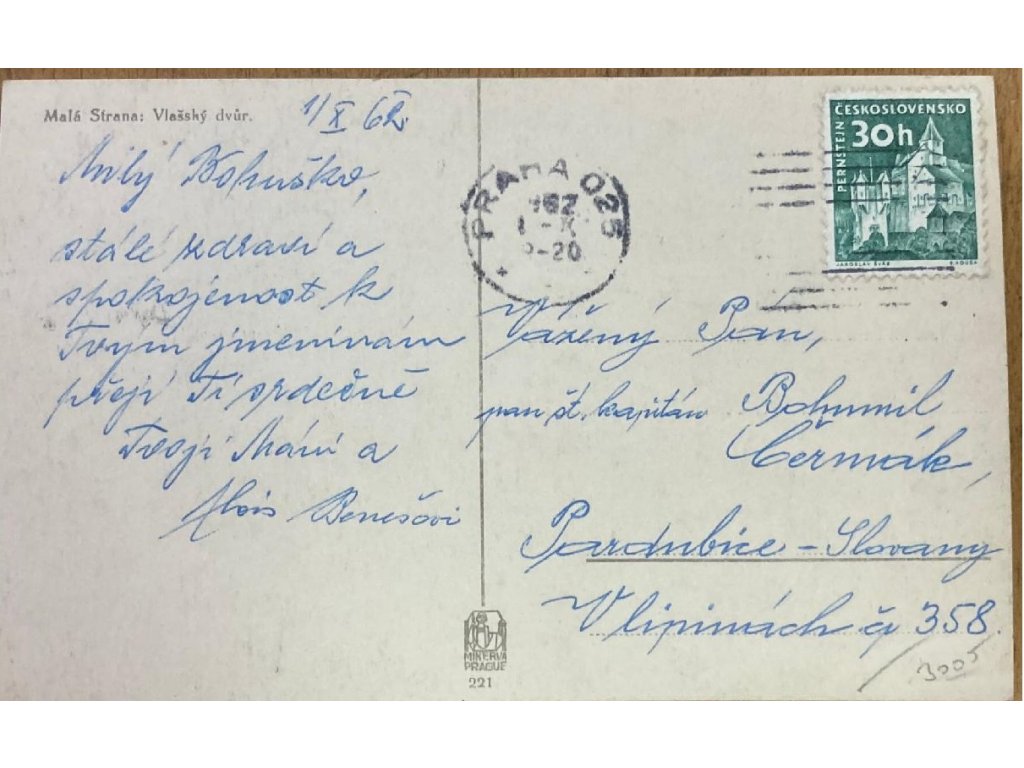 Malá Strana: Vlašský dvůr.
1/X 62.
Milý Bohuško,
stálé zdraví a
spokojenost k
Tvým jmeninám
přejí Ti srdečně
Tvoji Máni a
Alois Benešovi
PRAHA 025
1-X
-20
ČESKOSLOVENSKO
30h
PERNŠTEJN
JAROSLAV ŠVÁB
Vážený Pán,
pan št. kapitán Bohumil
Čermák,
Pardubice - Slovany
V lipinách čp 358.
3005
MINERVA
PRAGUE
221